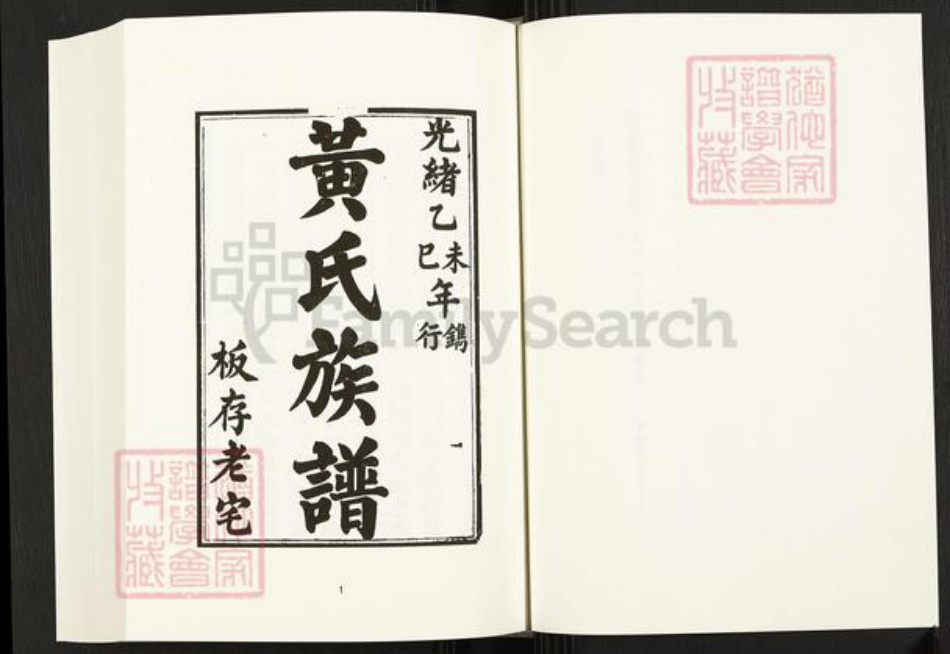 光緒乙未巳年鐫行
黃氏族譜
板存老宅
1
FamilySearch
猶他家
譜學會
收藏
猶他家
譜學會
收藏